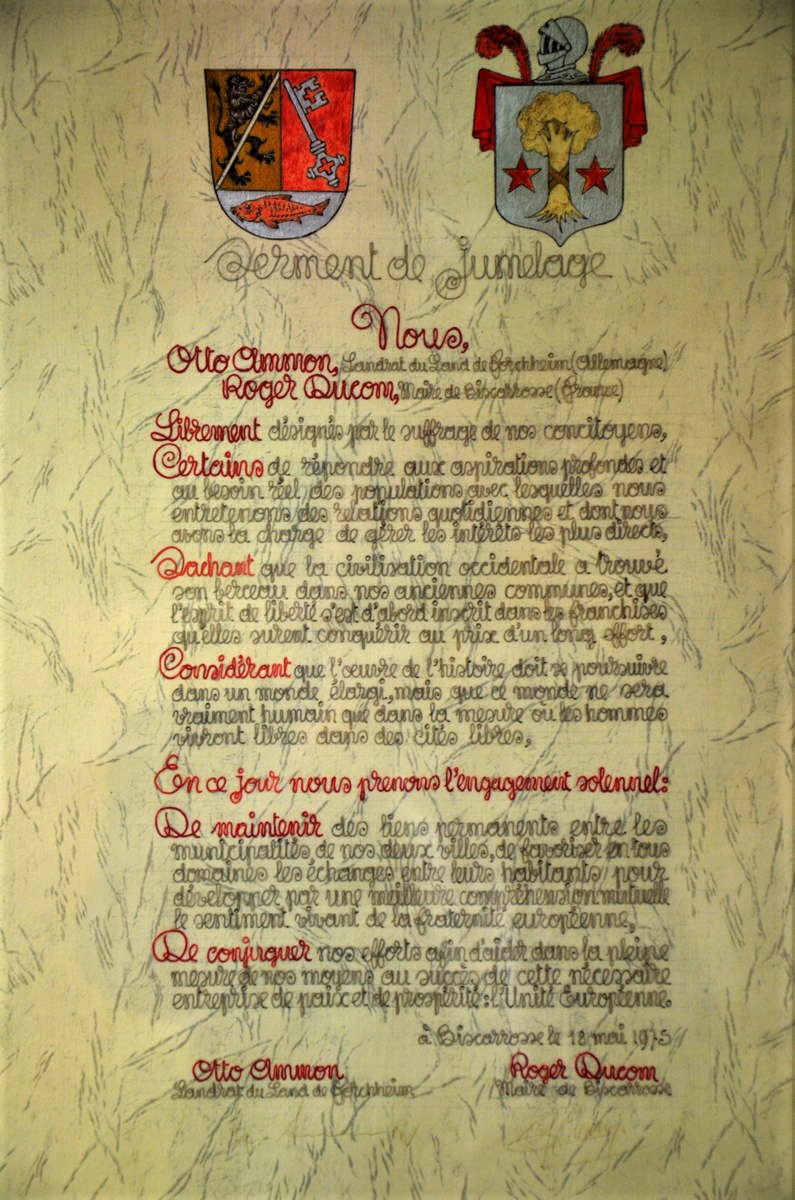 Serment de Jumelage
Nous,
Otto Ammon, Landrat du Land de Forchheim (Allemagne)
Roger Ducom, Maire de Biscarrosse (France)
Librement désignés par le suffrage de nos concitoyens,
Certains de répondre aux aspirations profondes et
au besoin réel des populations avec lesquelles nous
entretenons des relations quotidiennes et dont nous
avons la charge de gérer les intérêts les plus directs,
Sachant que la civilisation occidentale a trouvé
son berceau dans nos anciennes communes, et que
l'esprit de liberté s'est d'abord inscrit dans les franchises
qu'elles surent conquérir au prix d'un long effort,
Considérant que l'œuvre de l'histoire doit se poursuivre
dans un monde élargi, mais que ce monde ne sera
vraiment humain que dans la mesure où les hommes
vivront libres dans des cités libres,
En ce jour nous prenons l'engagement solennel:
De maintenir des liens permanents entre les
municipalités de nos deux villes, de favoriser en tous
domaines les échanges entre leurs habitants pour
développer par une meilleure compréhension mutuelle
le sentiment vivant de la fraternité européenne,
De conjuguer nos efforts afin d'aider dans la pleine
mesure de nos moyens au succès de cette nécessaire
entreprise de paix et de prospérité: l'Unité Européenne.
à Biscarrosse le 18 mai 1975
Otto Ammon Roger Ducom
Landrat du Land de Forchheim Maire de Biscarrosse